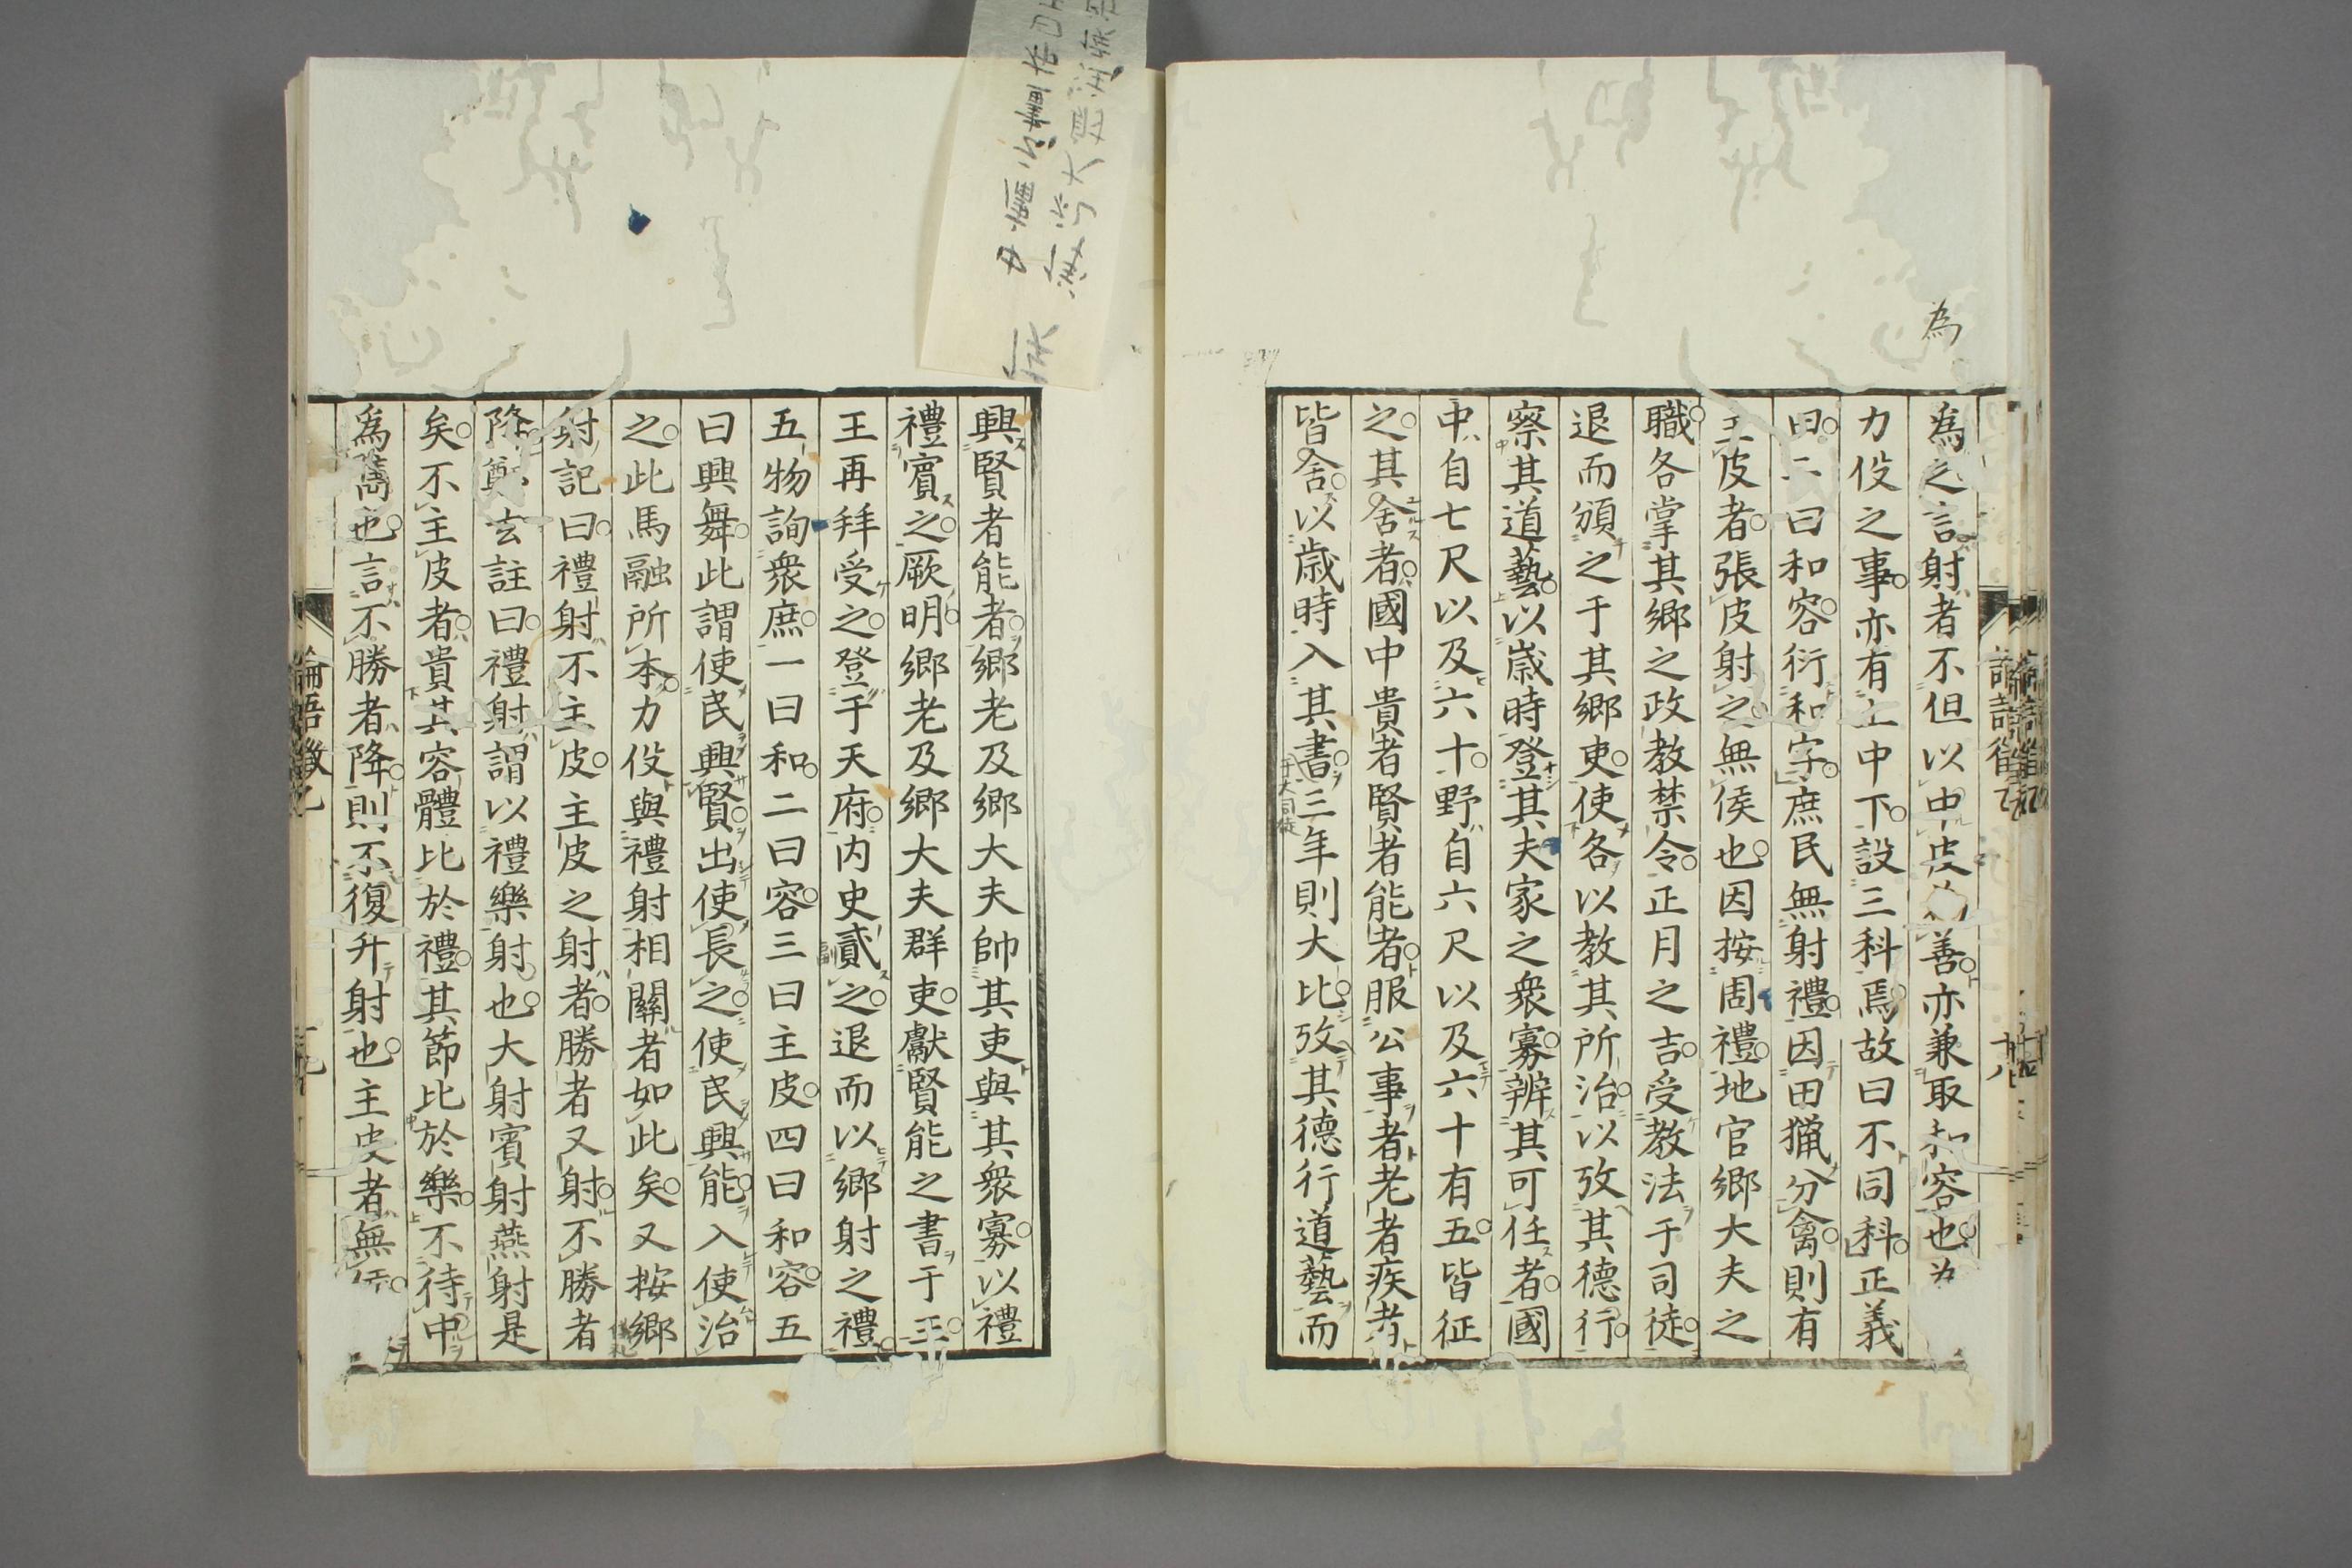 為
為之言射者不但以中皮善亦兼取和容也為
力伇之事亦有上中下設三科焉故曰不同科正義
曰二曰和容衍和字庶民無射禮因田獵分禽則有
主皮者張皮射之無侯也因按周禮地官鄉大夫之
職各掌其鄉之政教禁令正月之吉受教法于司徒
退而頒之于其鄉吏使各以教其所治以攷其德行
察其道藝以歲時登其夫家之衆寡辨其可任者國
中自七尺以及六十野自六尺以及六十有五皆征
之其舍者國中貴者賢者能者服公事者老者疾者
皆舍以歲時入其書三年則大比攷其德行道藝而
興賢者能者鄉老及鄉大夫帥其吏與其衆寡以禮
禮賓之厥明鄉老及鄉大夫群吏獻賢能之書于王
王再拜受之登于天府内史貳之退而以鄉射之禮
五物詢衆庶一曰和二曰容三曰主皮四曰和容五
曰興舞此謂使民興賢出使長之使民興能入使治
之此馬融所本力伇與禮射相關者如此矣又按鄉
射記曰禮射不主皮主皮之射者勝者又射不勝者
降鄭玄註曰禮射謂以禮樂射也大射賓射燕射是
矣不主皮者貴其容體比於禮其節比於樂不待中
為雋也言不勝者降則不復升射也主皮者無侯
論語徵乙